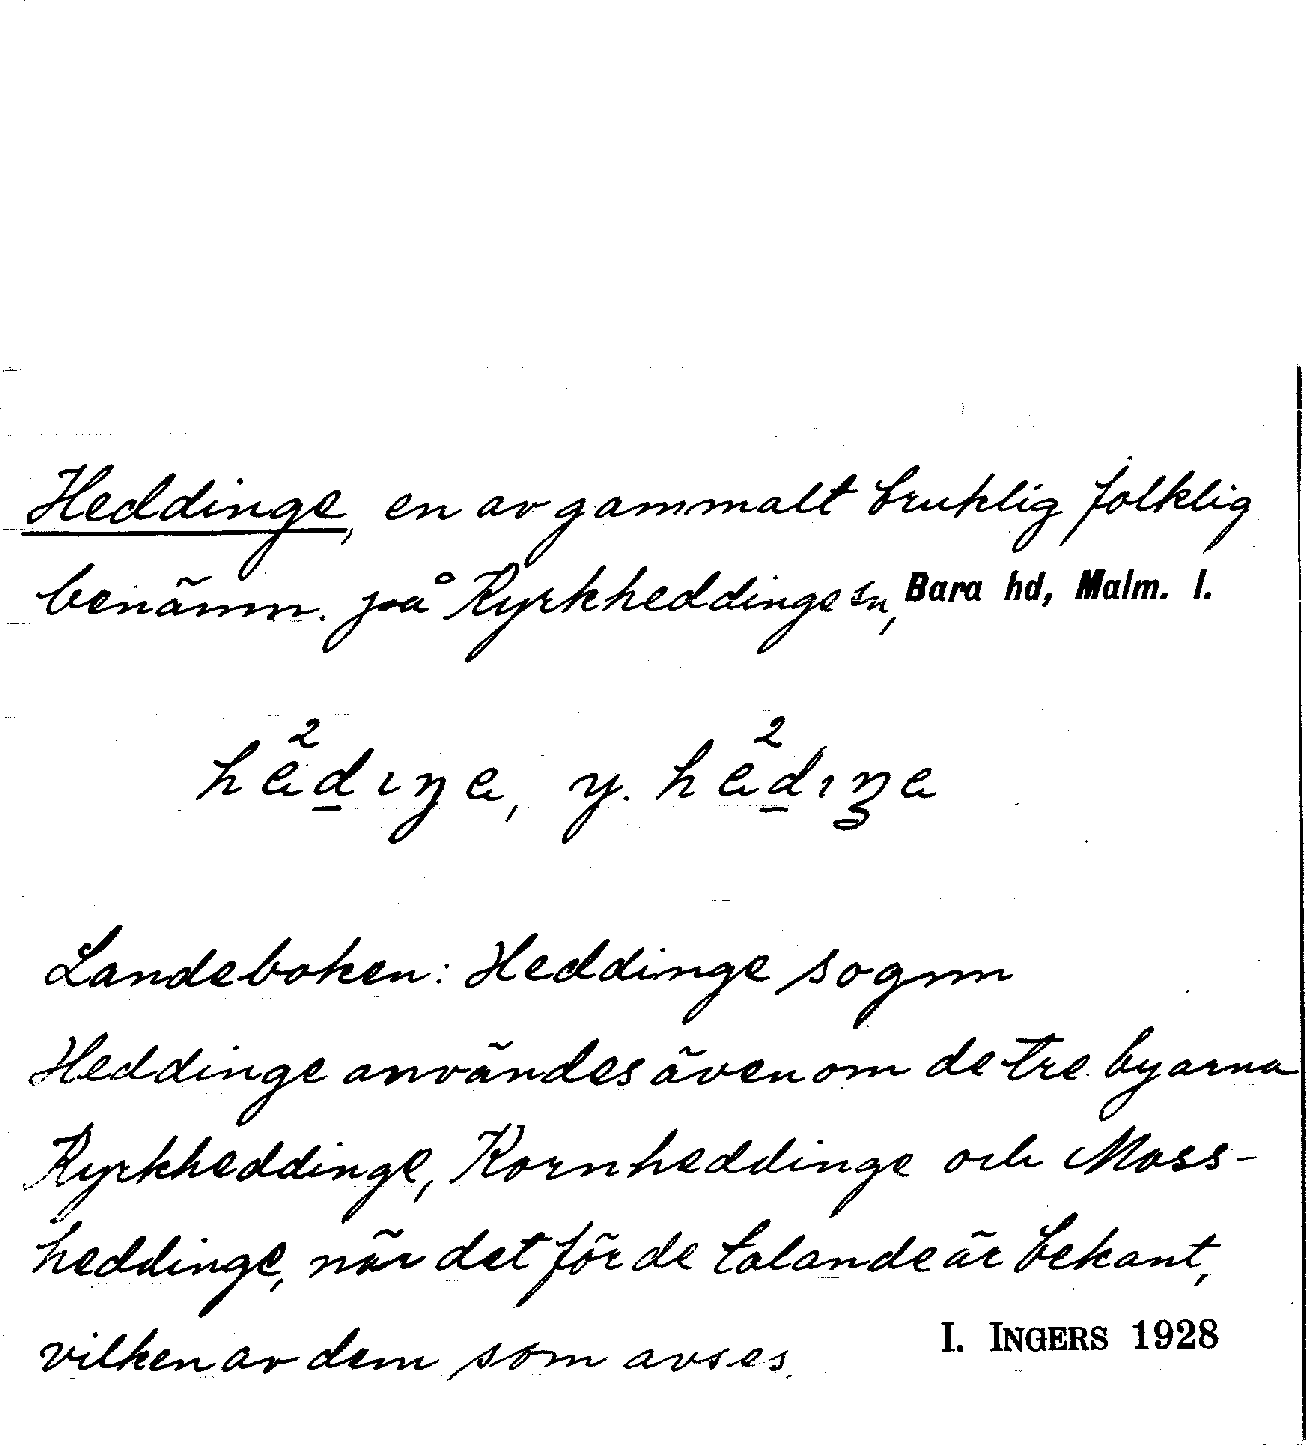 Heddinge, en av gammalt bruklig folklig
benämn. på Kyrkheddinge sn, Bara hd, Malm. l.
Landeboken: Heddinge sognn
Heddinge användes även om de tre byarna
Kyrkheddinge, Kornheddinge och Moss-
heddinge, när det för de talande är bekant,
vilken av dem som avses.
I. INGERS 1928